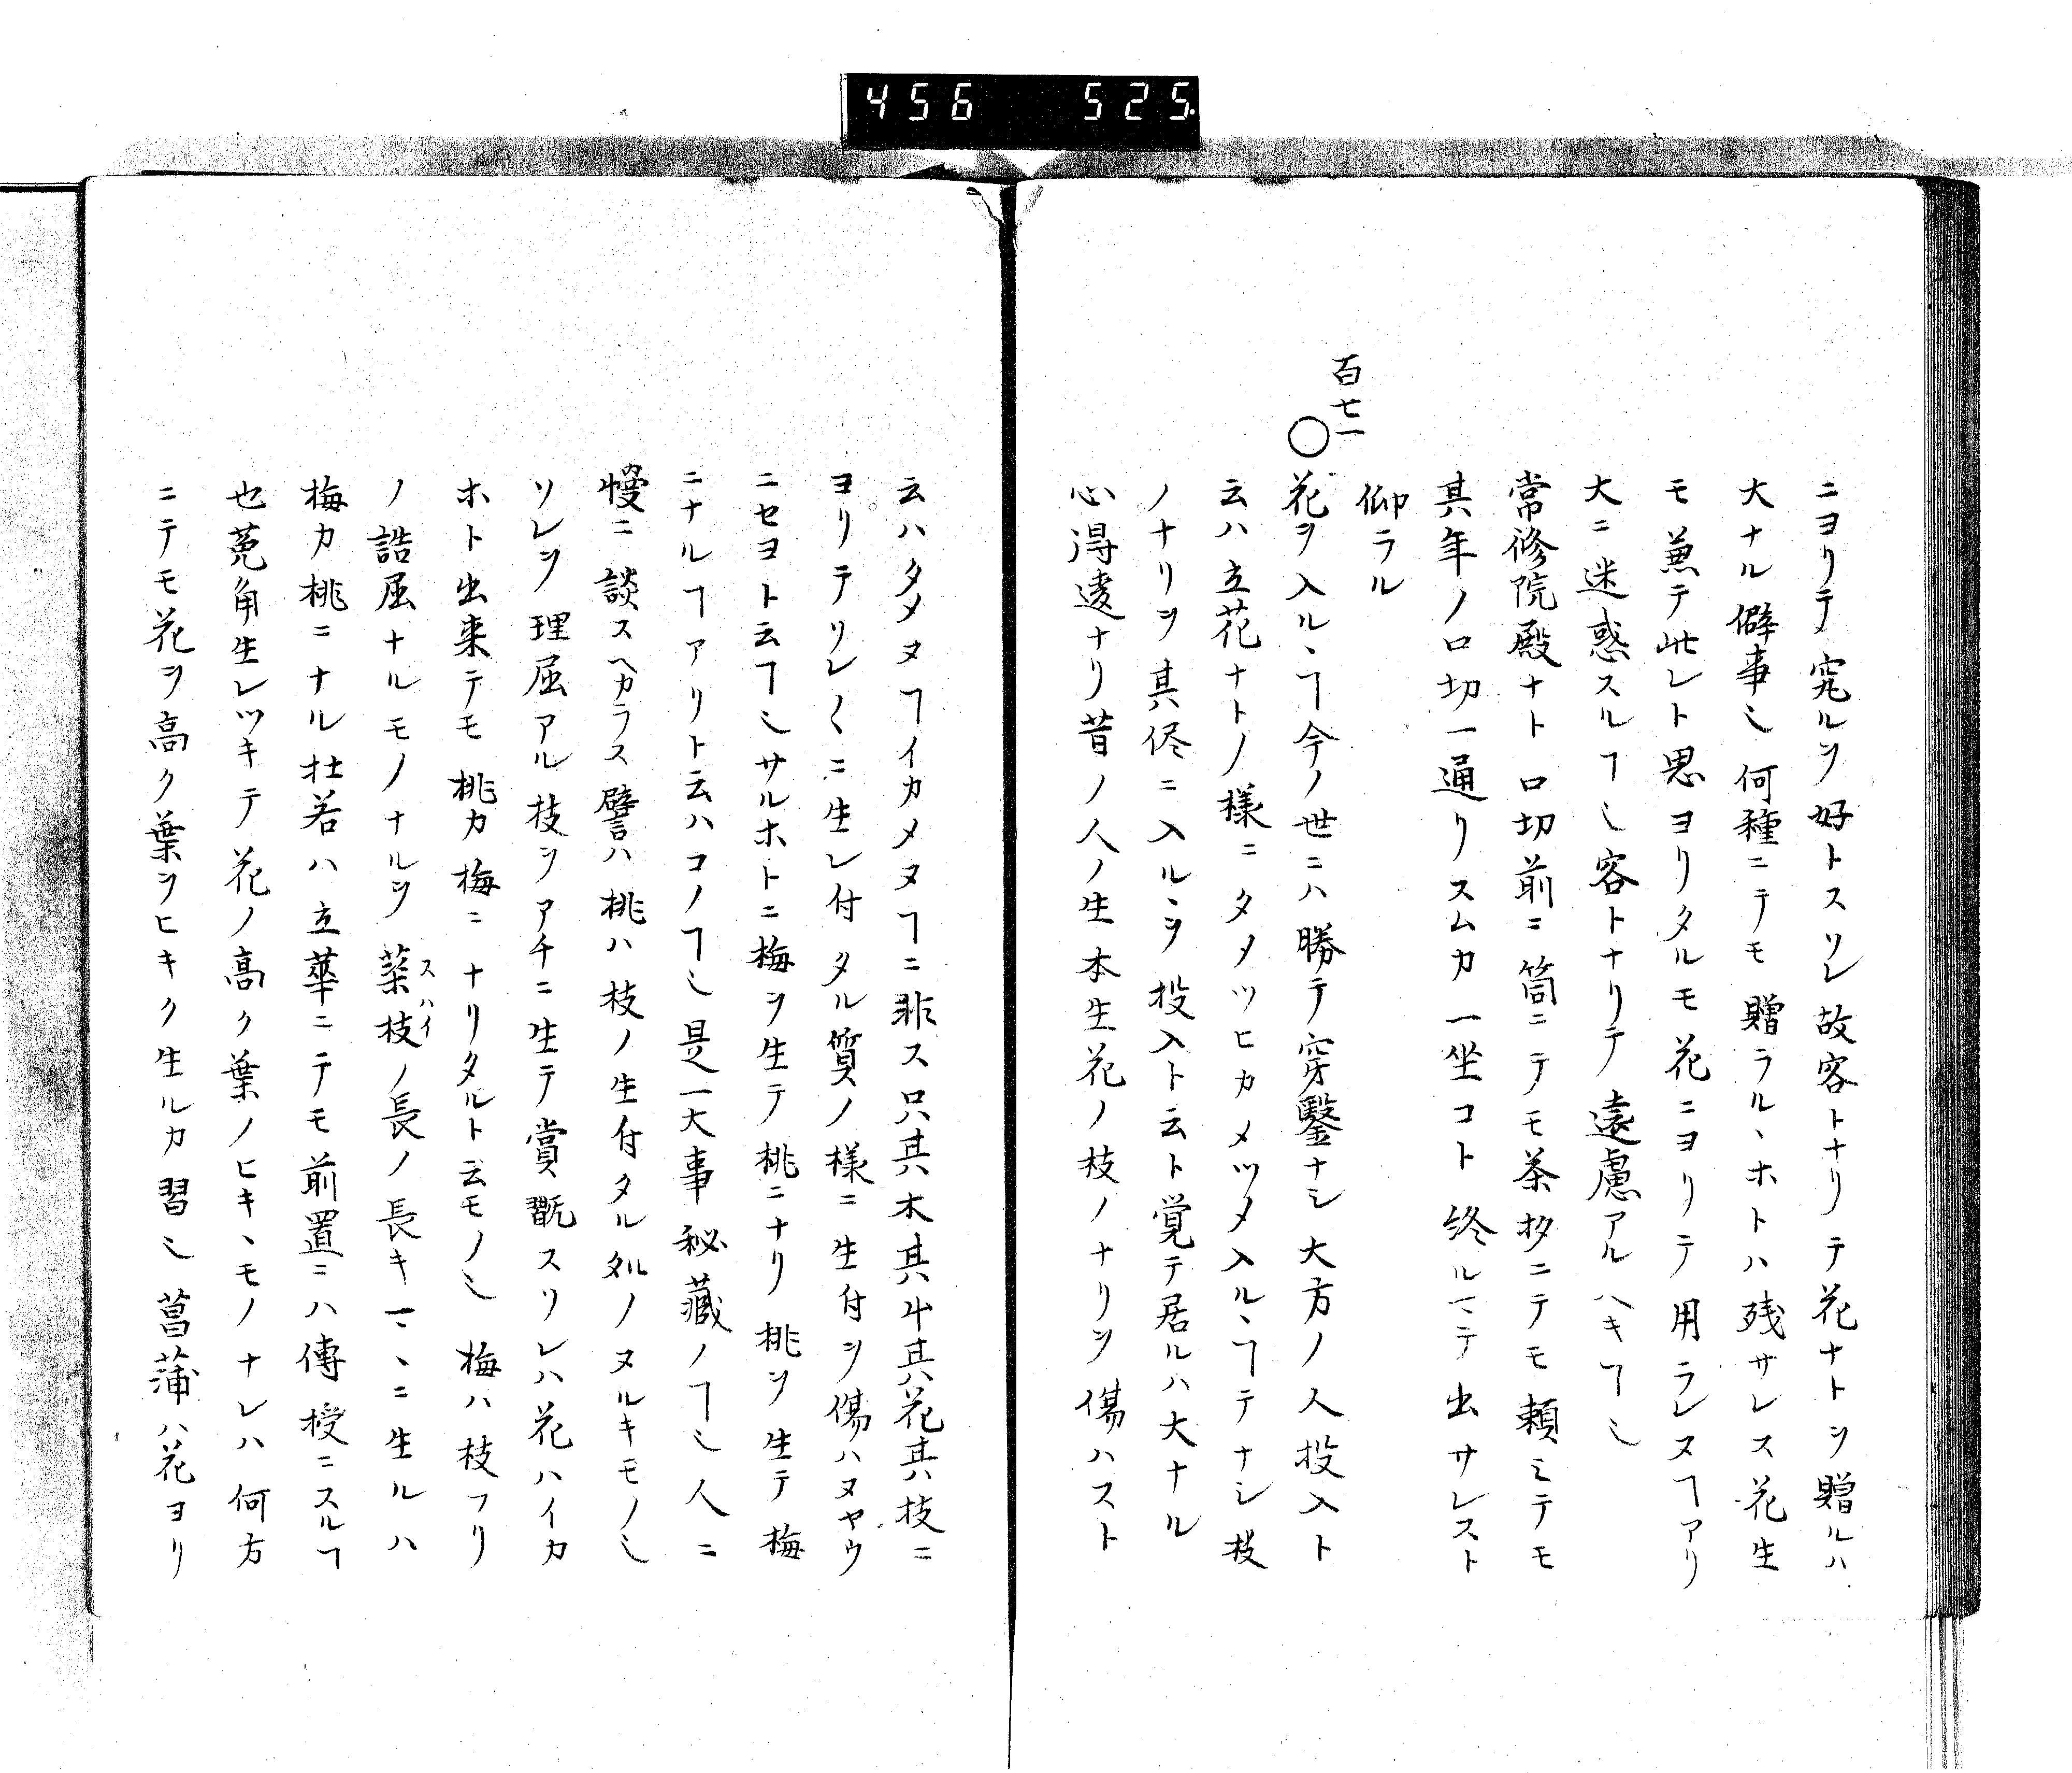 456 525.
ニヨリテ究ルヲ好トスソレ故客トナリテ花ナトヲ贈ルハ
大ナル僻事也何種ニテモ贈ラルヽホトハ残サレス花生
モ兼テ此レト思ヨリタルモ花ニヨリテ用ラレヌヿアリ
大ニ迷惑スルヿ也客トナリテ遠慮アルヘキヿ也
常修院殿ナト口切前ニ筒ニテモ茶杓ニテモ頼ミテモ
其年ノ口切一通リスムカ一坐コト終ルマテ出サレスト
仰ラル
百七一
○花ヲ入ルヽヿ今ノ世ニハ勝テ穿鑿ナシ大方ノ人投入ト
云ハ立花ナトノ様ニタメツヒカメツメ入ルヽヿテナシ枝
ノナリヲ其侭ニ入ルヽヲ投入ト云ト覚テ居ルハ大ナル
心得違ナリ昔ノ人ノ生本生花ノ枝ノナリヲ傷ハスト
云ハタメヌヿイカメヌヿニ非ス只其木其草其花其枝ニ
ヨリテソレ〱ニ生レ付タル質ノ様ニ生付ヲ傷ハヌヤウ
ニセヨト云ヿ也サルホトニ梅ヲ生テ桃ニナリ桃ヲ生テ梅
ニナルヿアリト云ハコノヿ也是一大事秘蔵ノヿ也人ニ
慢ニ談スヘカラス譬ハ桃ハ枝ノ生付タル処ノヌルキモノ也
ソレヲ理屈アル枝ヲアチニ生テ賞翫スリレハ花ハイカ
ホト出来テモ桃カ梅ニナリタルト云モノ也梅ハ枝フリ
ノ詰屈ナルモノナルヲ葉枝ノ長ノ長キマヽニ生ルハ
スハイ
梅カ桃ニナル杜若ハ立華ニテモ前置ニハ傳授ニスルヿ
也菟角生レツキテ花ノ高ク葉ノヒキヽモノナレハ何方
ニテモ花ヲ高ク葉ヲヒキク生ルカ習也菖蒲ハ花ヨリ